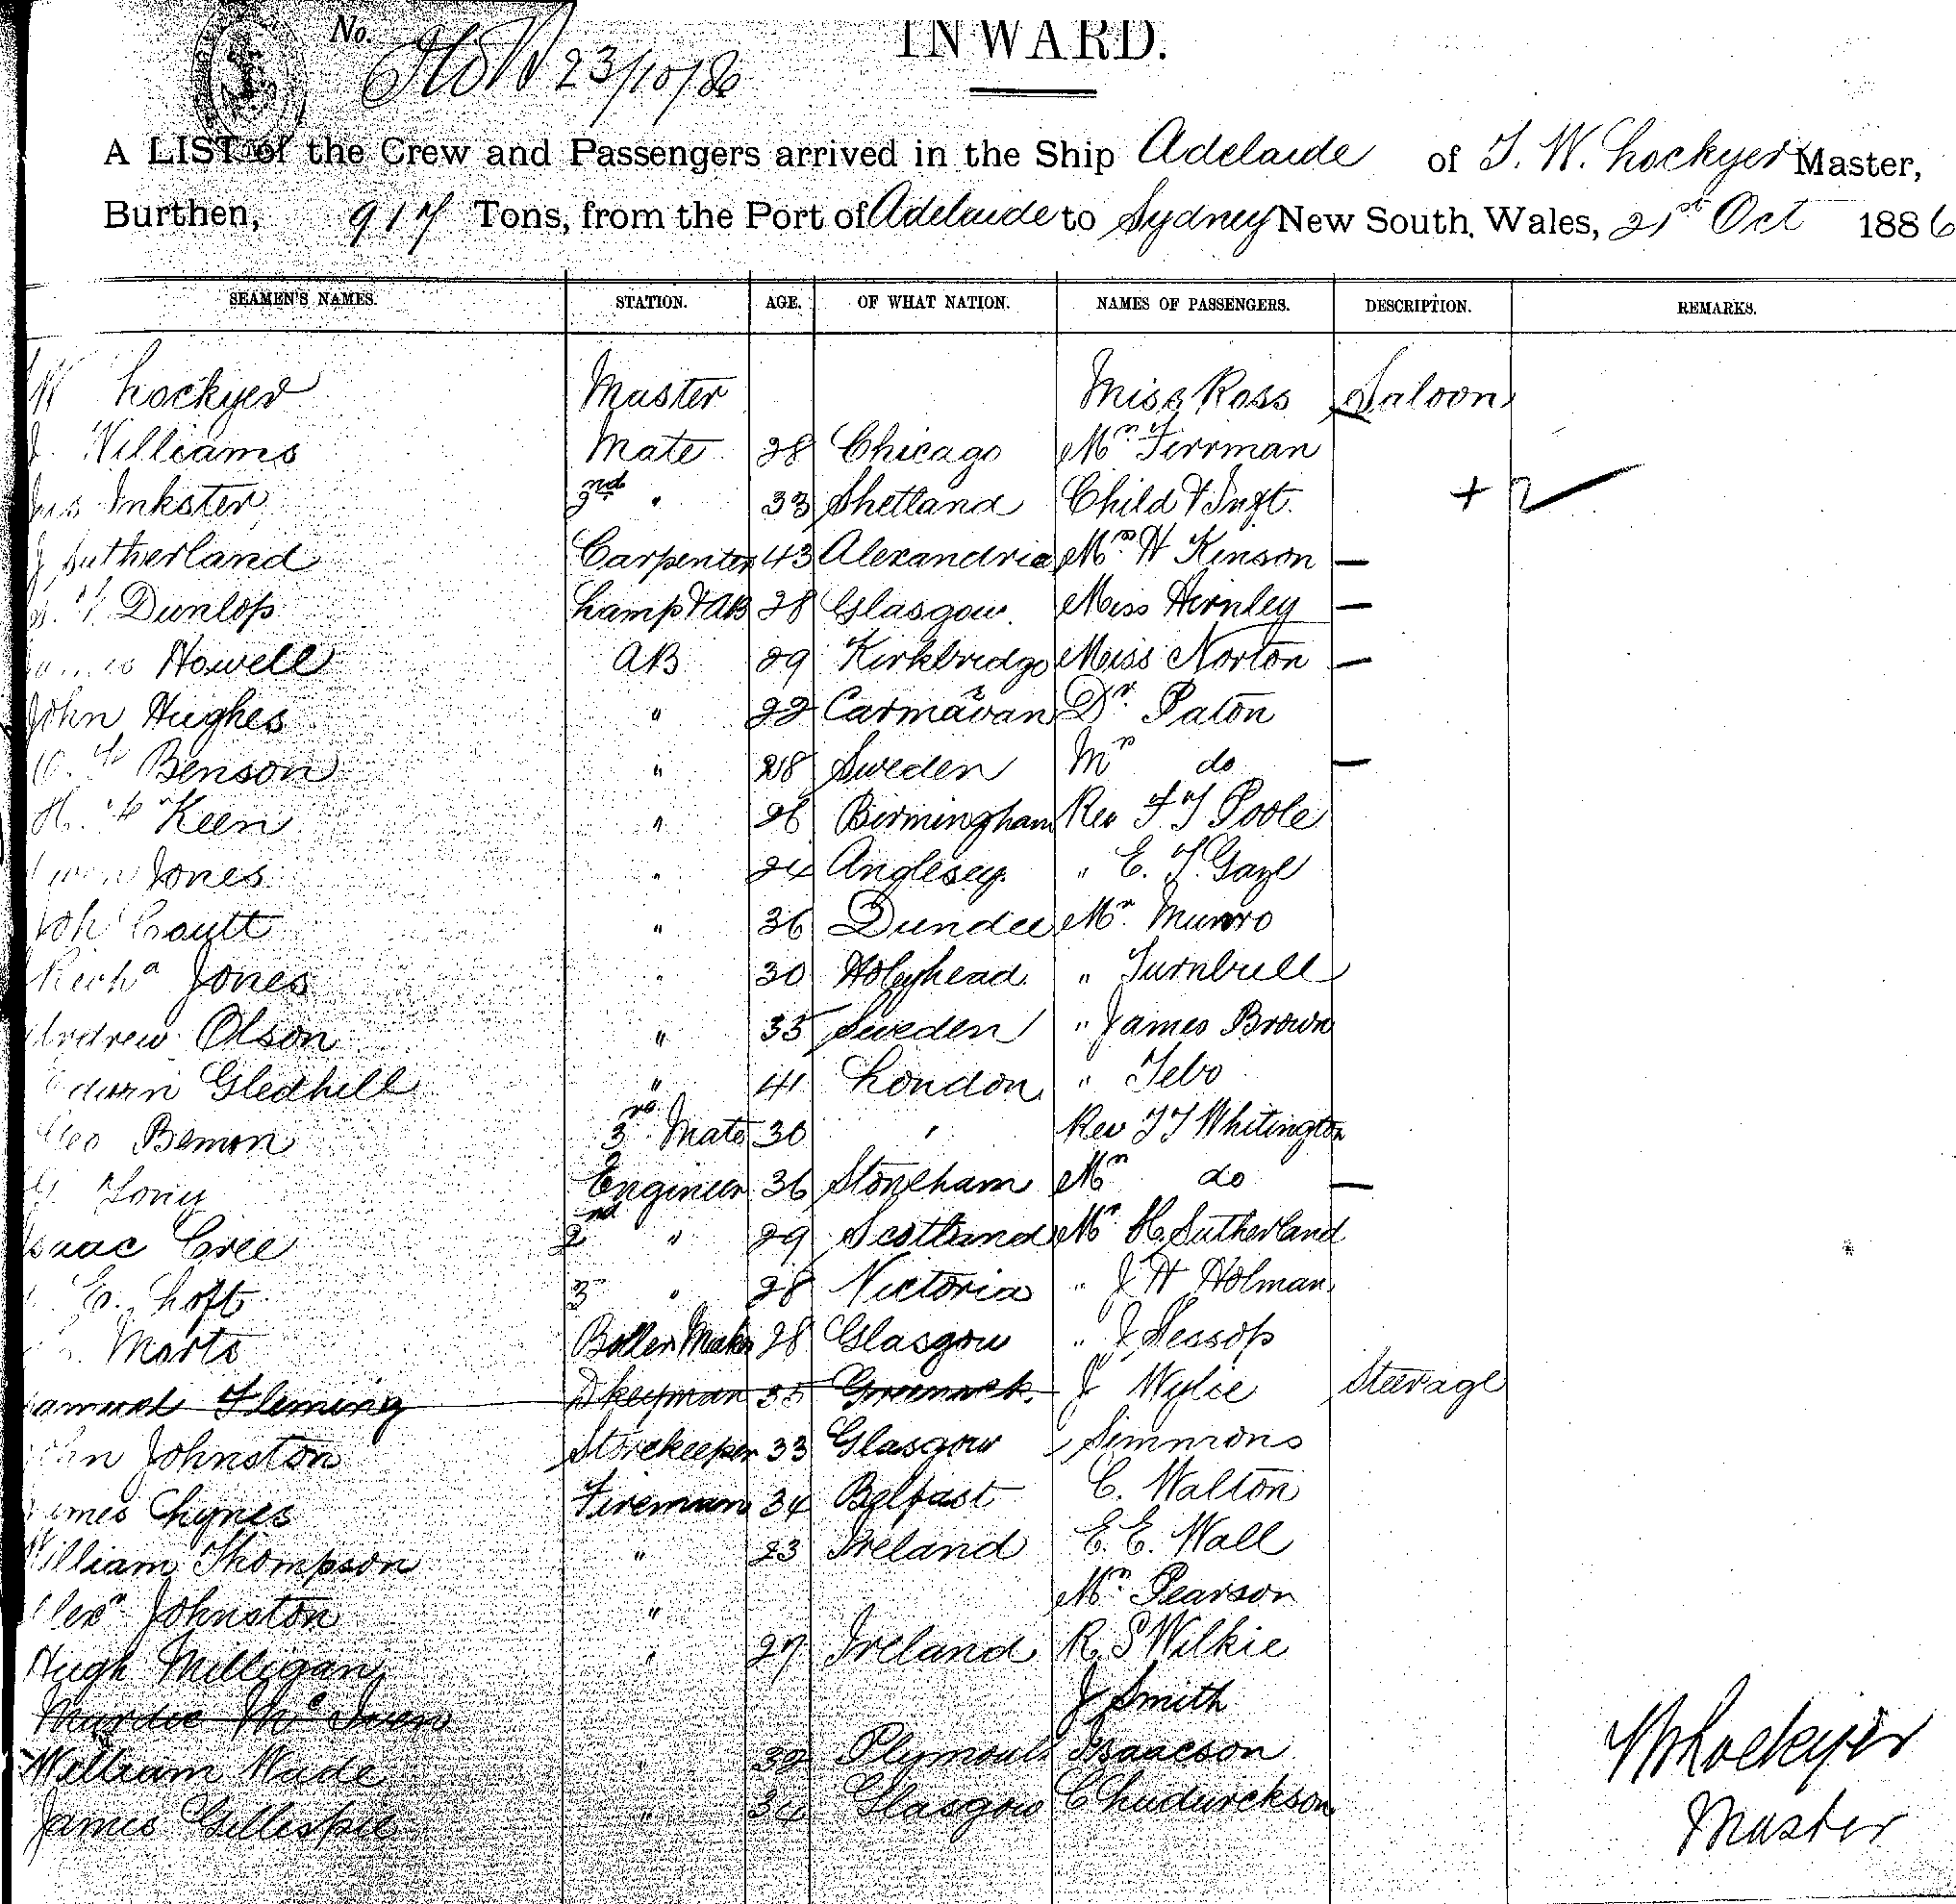 No. 23/10/86
INWARD.
A LIST of the Crew and Passengers arrived in the Ship Adelaide of T. W. Lockyer Master,
Burthen, 917 Tons, from the Port of Adelaide to Sydney New South Wales, 21st Oct 1886
SEAMEN'S NAMES. STATION. AGE. OF WHAT NATION. NAMES OF PASSENGERS. DESCRIPTION. REMARKS.
W Lockyer Master Miss Ross Saloon
J. Williams Mate 28 Chicago Mrs Ferriman
Jas Inkster 2nd " 33 Shetland Child & Inft. + 2
J Sutherland Carpenter 43 Alexandria Mrs H Kinson —
Dunlop Lamp & AB 28 Glasgow Miss Hirnley —
Howell AB 29 Kirkbridge Miss Norton —
John Hughes " 22 Carnarvan Dr Paton
Benson " 28 Sweden Mrs do —
H. Keen " 26 Birmingham Rev F T Poole
Owen Jones " 24 Anglesey " E. T. Gaze
Coutt " 36 Dundee Mr Munro
Richd Jones " 30 Holyhead " Turnbull
Andrew Olson " 35 Sweden " James Brown
Edwin Gledhill " 41 London " Tebo
Geo Bemon 3rd Mate 30 " Rev F T Whitington
Engineer 36 Stoneham Mrs do —
Isaac Cree 2nd " 29 Scotland Mr H Sutherland
E. Loft 3 " 28 Victoria " J H Holman
Marts Boiler Maker 28 Glasgow " J Jessop
Samuel Fleming Dkeyman 35 Greenock J Wylie Steerage
John Johnston Storekeeper 33 Glasgow Simmons
James Lynes Fireman 34 Belfast C. Walton
William Thompson " 23 Ireland E. E. Wall
Alexr Johnston " Mrs Pearson
Hugh Milligan " 27 Ireland R. S Wilkie
Murdoc McSwen J Smith
William Wade " 32 Plymouth Isaacson
James Gillespie " 34 Glasgow C
W Lockyer
Master